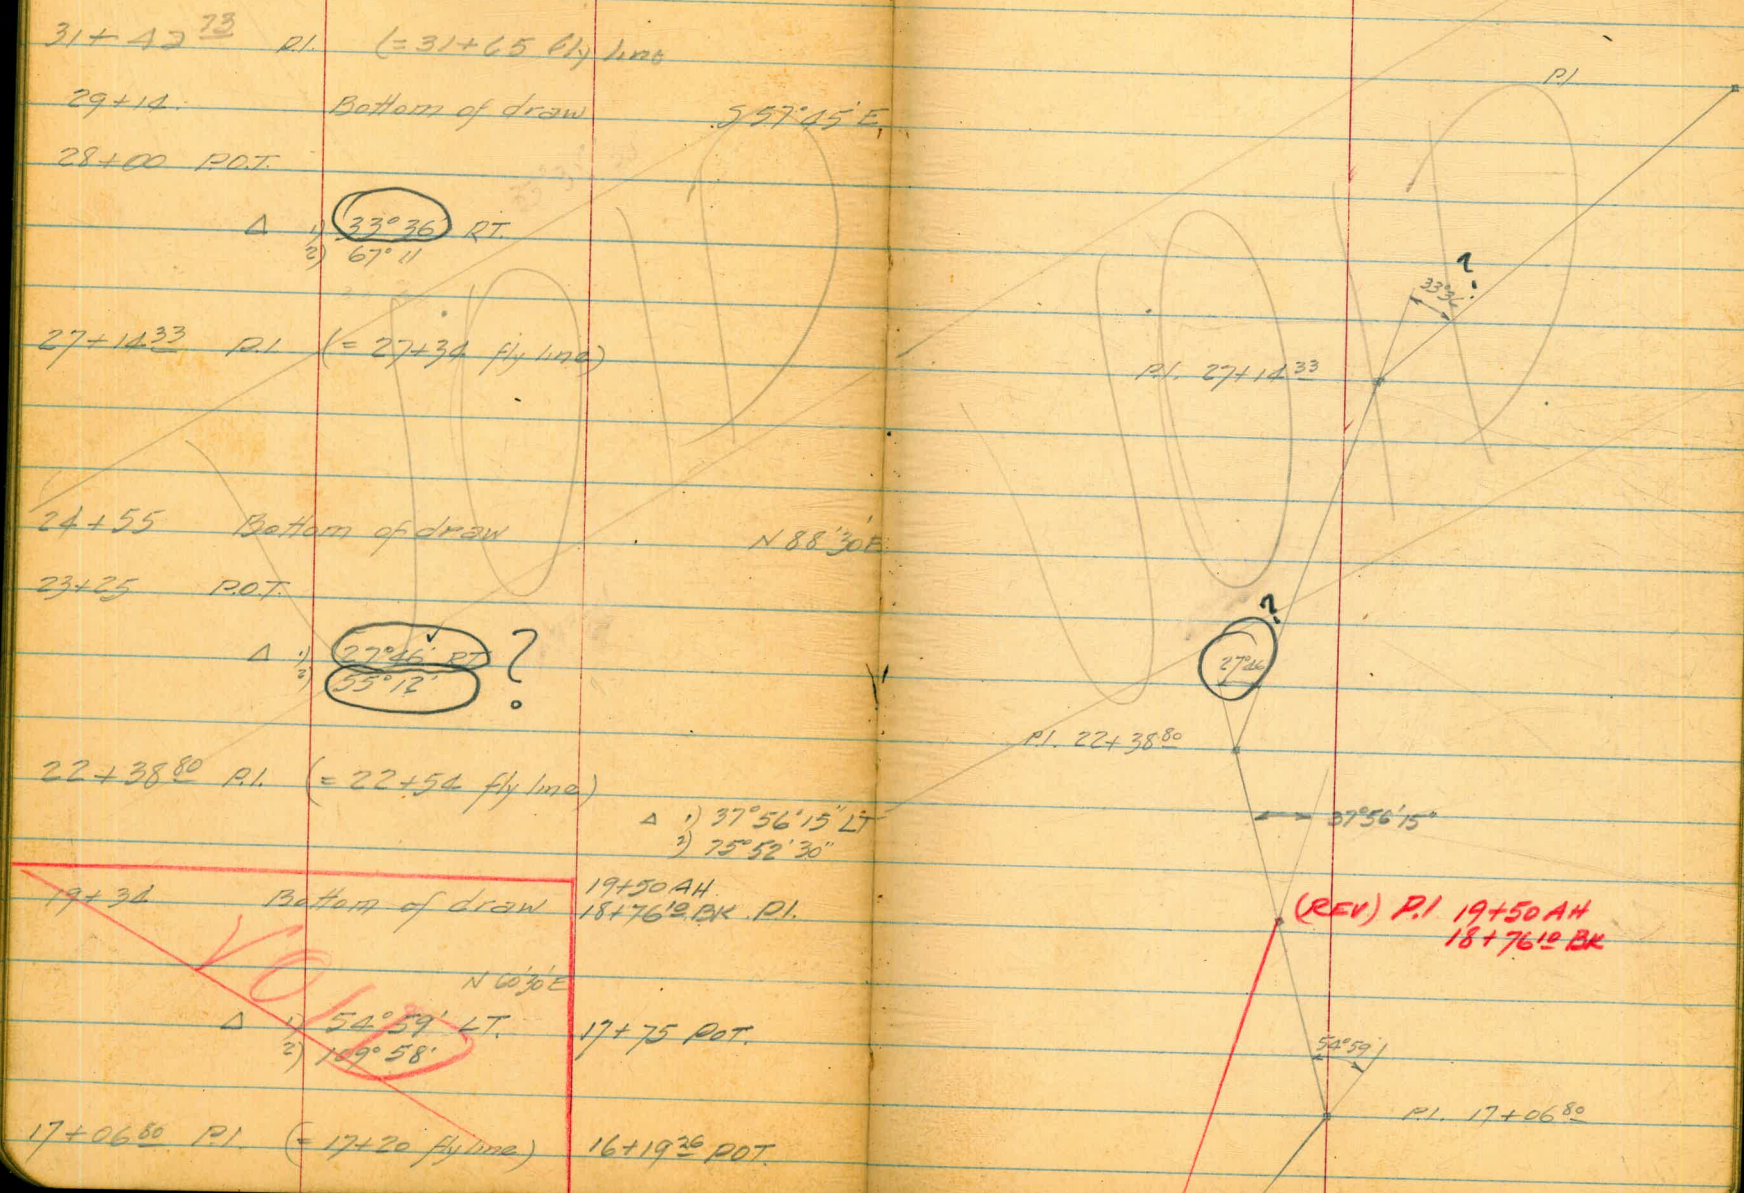 31+42 73 P.I. (= 31+65 fly line
29+14. Bottom of draw S 57°45' E.
28+00 P.O.T.
Δ 1) 33°36' RT.
2) 67°11
27+14 33 P.I. (= 27+34 fly line)
24+55 Bottom of draw N 88°30'E
23+25 P.O.T.
Δ 1) 27°46' RT ?
2) 55°12'
22+38 80 P.I. (= 22+54 fly line)
Δ 1) 37°56'15" LT
2) 75°52'30"
19+34 Bottom of draw
19+50 AH.
18+76 10 BK. P.I.
VOID
N 60°30'E
Δ 1) 54°59' LT.
2) 109°58'
17+75 POT.
17+06 80 P.I. (= 17+20 fly line)
16+19 26 POT.
VOID
VOID
P.I.
?
33°36'
P.I. 27+14 33
?
27°46
P.I. 22+38 80
37°56'15"
(REV) P.I. 19+50 AH
18+76 10 BK
54°59'
P.I. 17+06 80